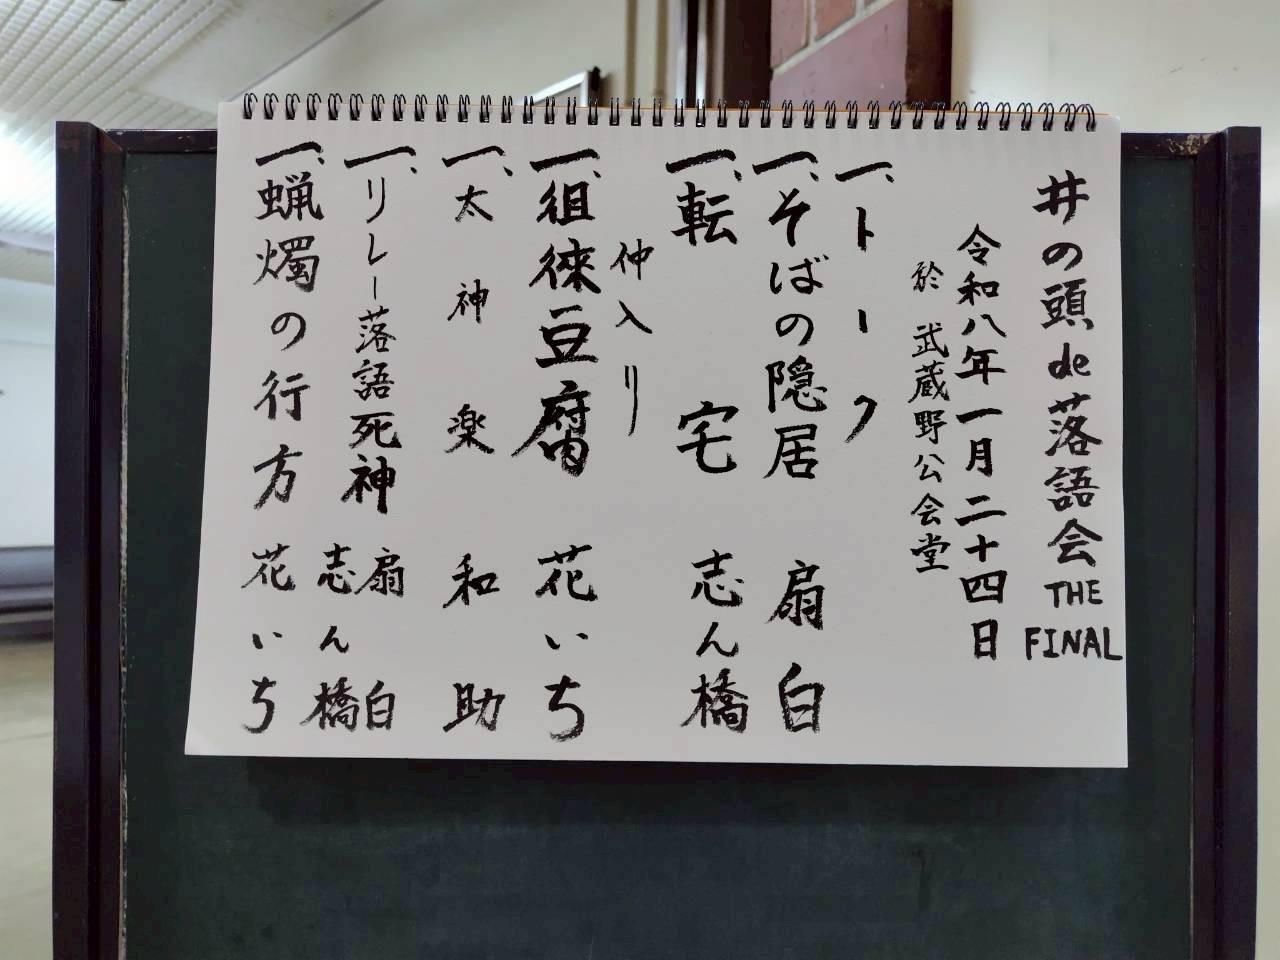 井の頭de落語会THE FINAL
令和八年一月二十四日
於 武蔵野公会堂
一、トーク
一、そばの隠居 扇白
一、転宅 志ん橋
仲入り
一、徂徠豆腐 花いち
一、太神楽 和助
一、リレー落語死神 扇白 志ん橋
一、蝋燭の行方 花いち